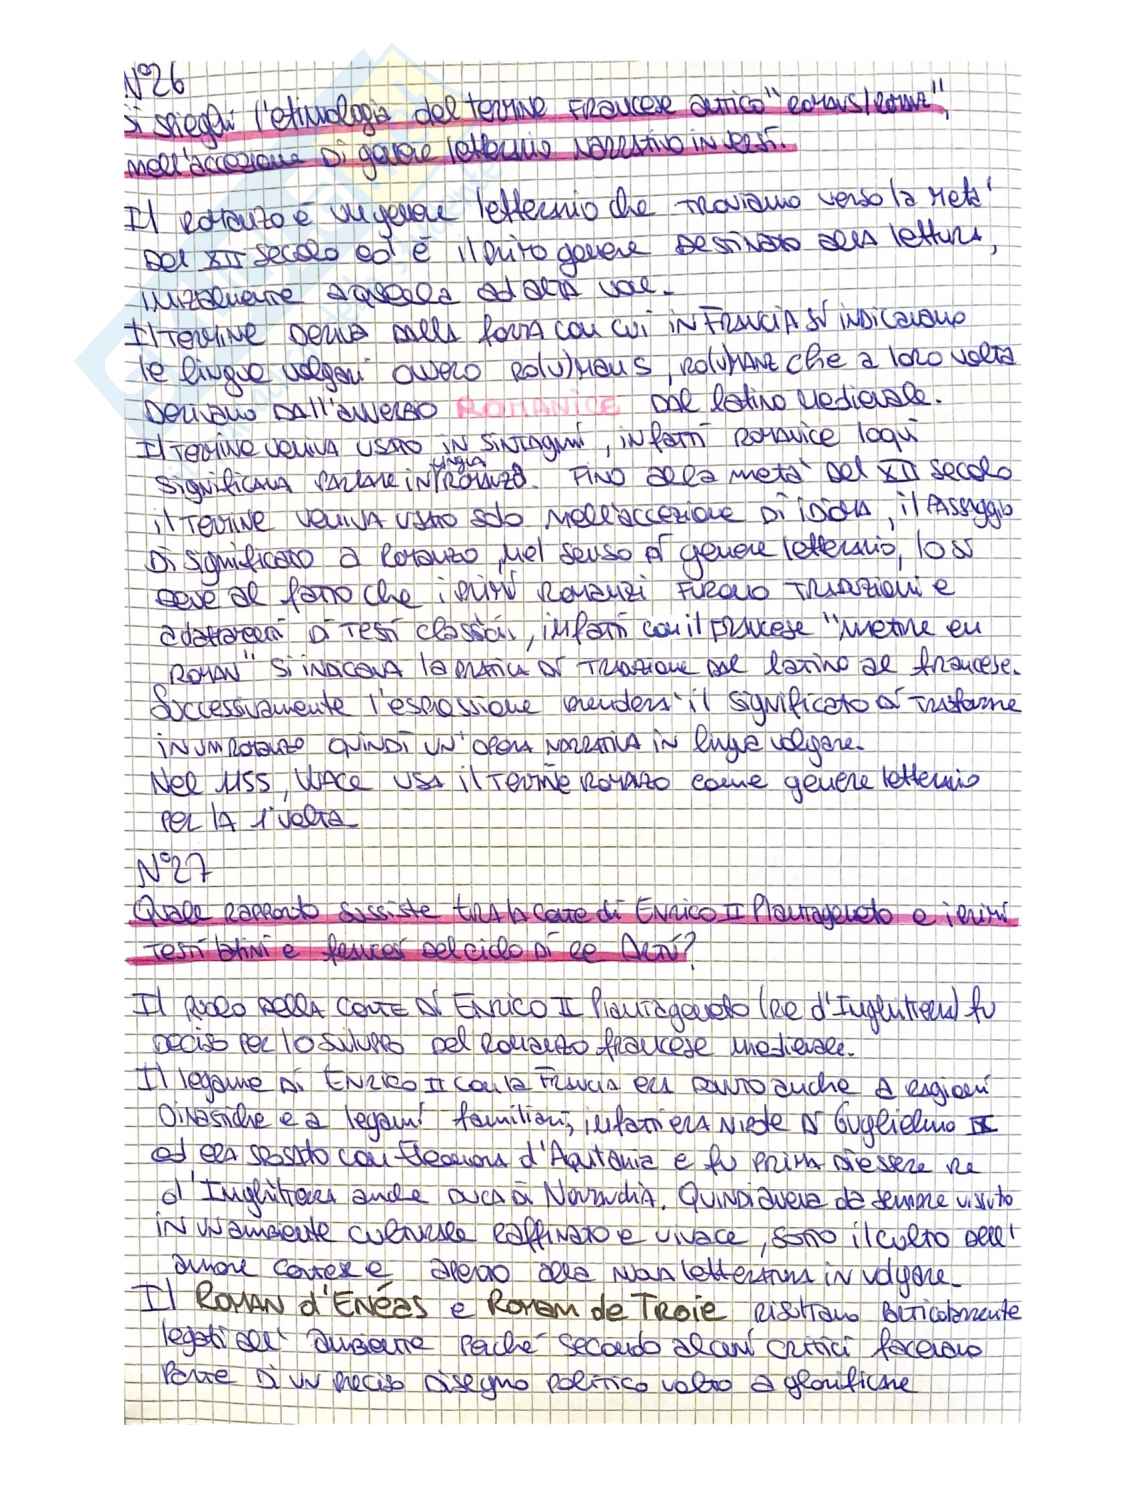 N°26
Si spieghi l'etimologia del termine francese antico "romans/romanz",
nell'accezione di genere letterario narrativo in versi.
Il romanzo è un genere letterario che troviamo verso la metà
del XII secolo ed è il primo genere destinato alla lettura,
inizialmente a quella ad alta voce.
Il termine deriva dalla forma con cui in Francia si indicavano
le lingue volgari ovvero ro(u)mans, ro(u)manz che a loro volta
derivano dall'avverbio ROMANICE dal latino medievale.
Il termine veniva usato in sintagmi, infatti romanice loqui
significava parlare in lingua romanza. Fino alla metà del XII secolo
il termine veniva usato solo nell'accezione di idioma, il passaggio
di significato a romanzo, nel senso di genere letterario, lo si
deve al fatto che i primi romanzi furono traduzioni e
adattamenti di testi classici, infatti con il francese "mettre en
roman" si indicava la pratica di traduzione dal latino al francese.
Successivamente l'espressione prenderà il significato di trasformare
in un romanzo quindi un'opera narrativa in lingua volgare.
Nel 1155, Wace usa il termine romanzo come genere letterario
per la 1ª volta
N°27
Quale rapporto sussiste tra la corte di Enrico II Plantageneto e i primi
testi latini e francesi del ciclo di re Artù?
Il ruolo della corte di Enrico II Plantageneto (re d'Inghilterra) fu
deciso per lo sviluppo del romanzo francese medievale.
Il legame di Enrico II con la Francia era dovuto anche a ragioni
dinastiche e a legami familiari, infatti era nipote di Guglielmo IX
ed era sposato con Eleonora d'Aquitania e fu prima di essere re
d'Inghilterra anche duca di Normandia. Quindi aveva da sempre vissuto
in un ambiente culturale raffinato e vivace, sotto il culto dell'
amore cortese e aperto alla nuova letteratura in volgare.
Il Roman d'Enéas e Roman de Troie risultano particolarmente
legati all' ambiente perché secondo alcuni critici facevano
parte di un preciso disegno politico volto a glorificare